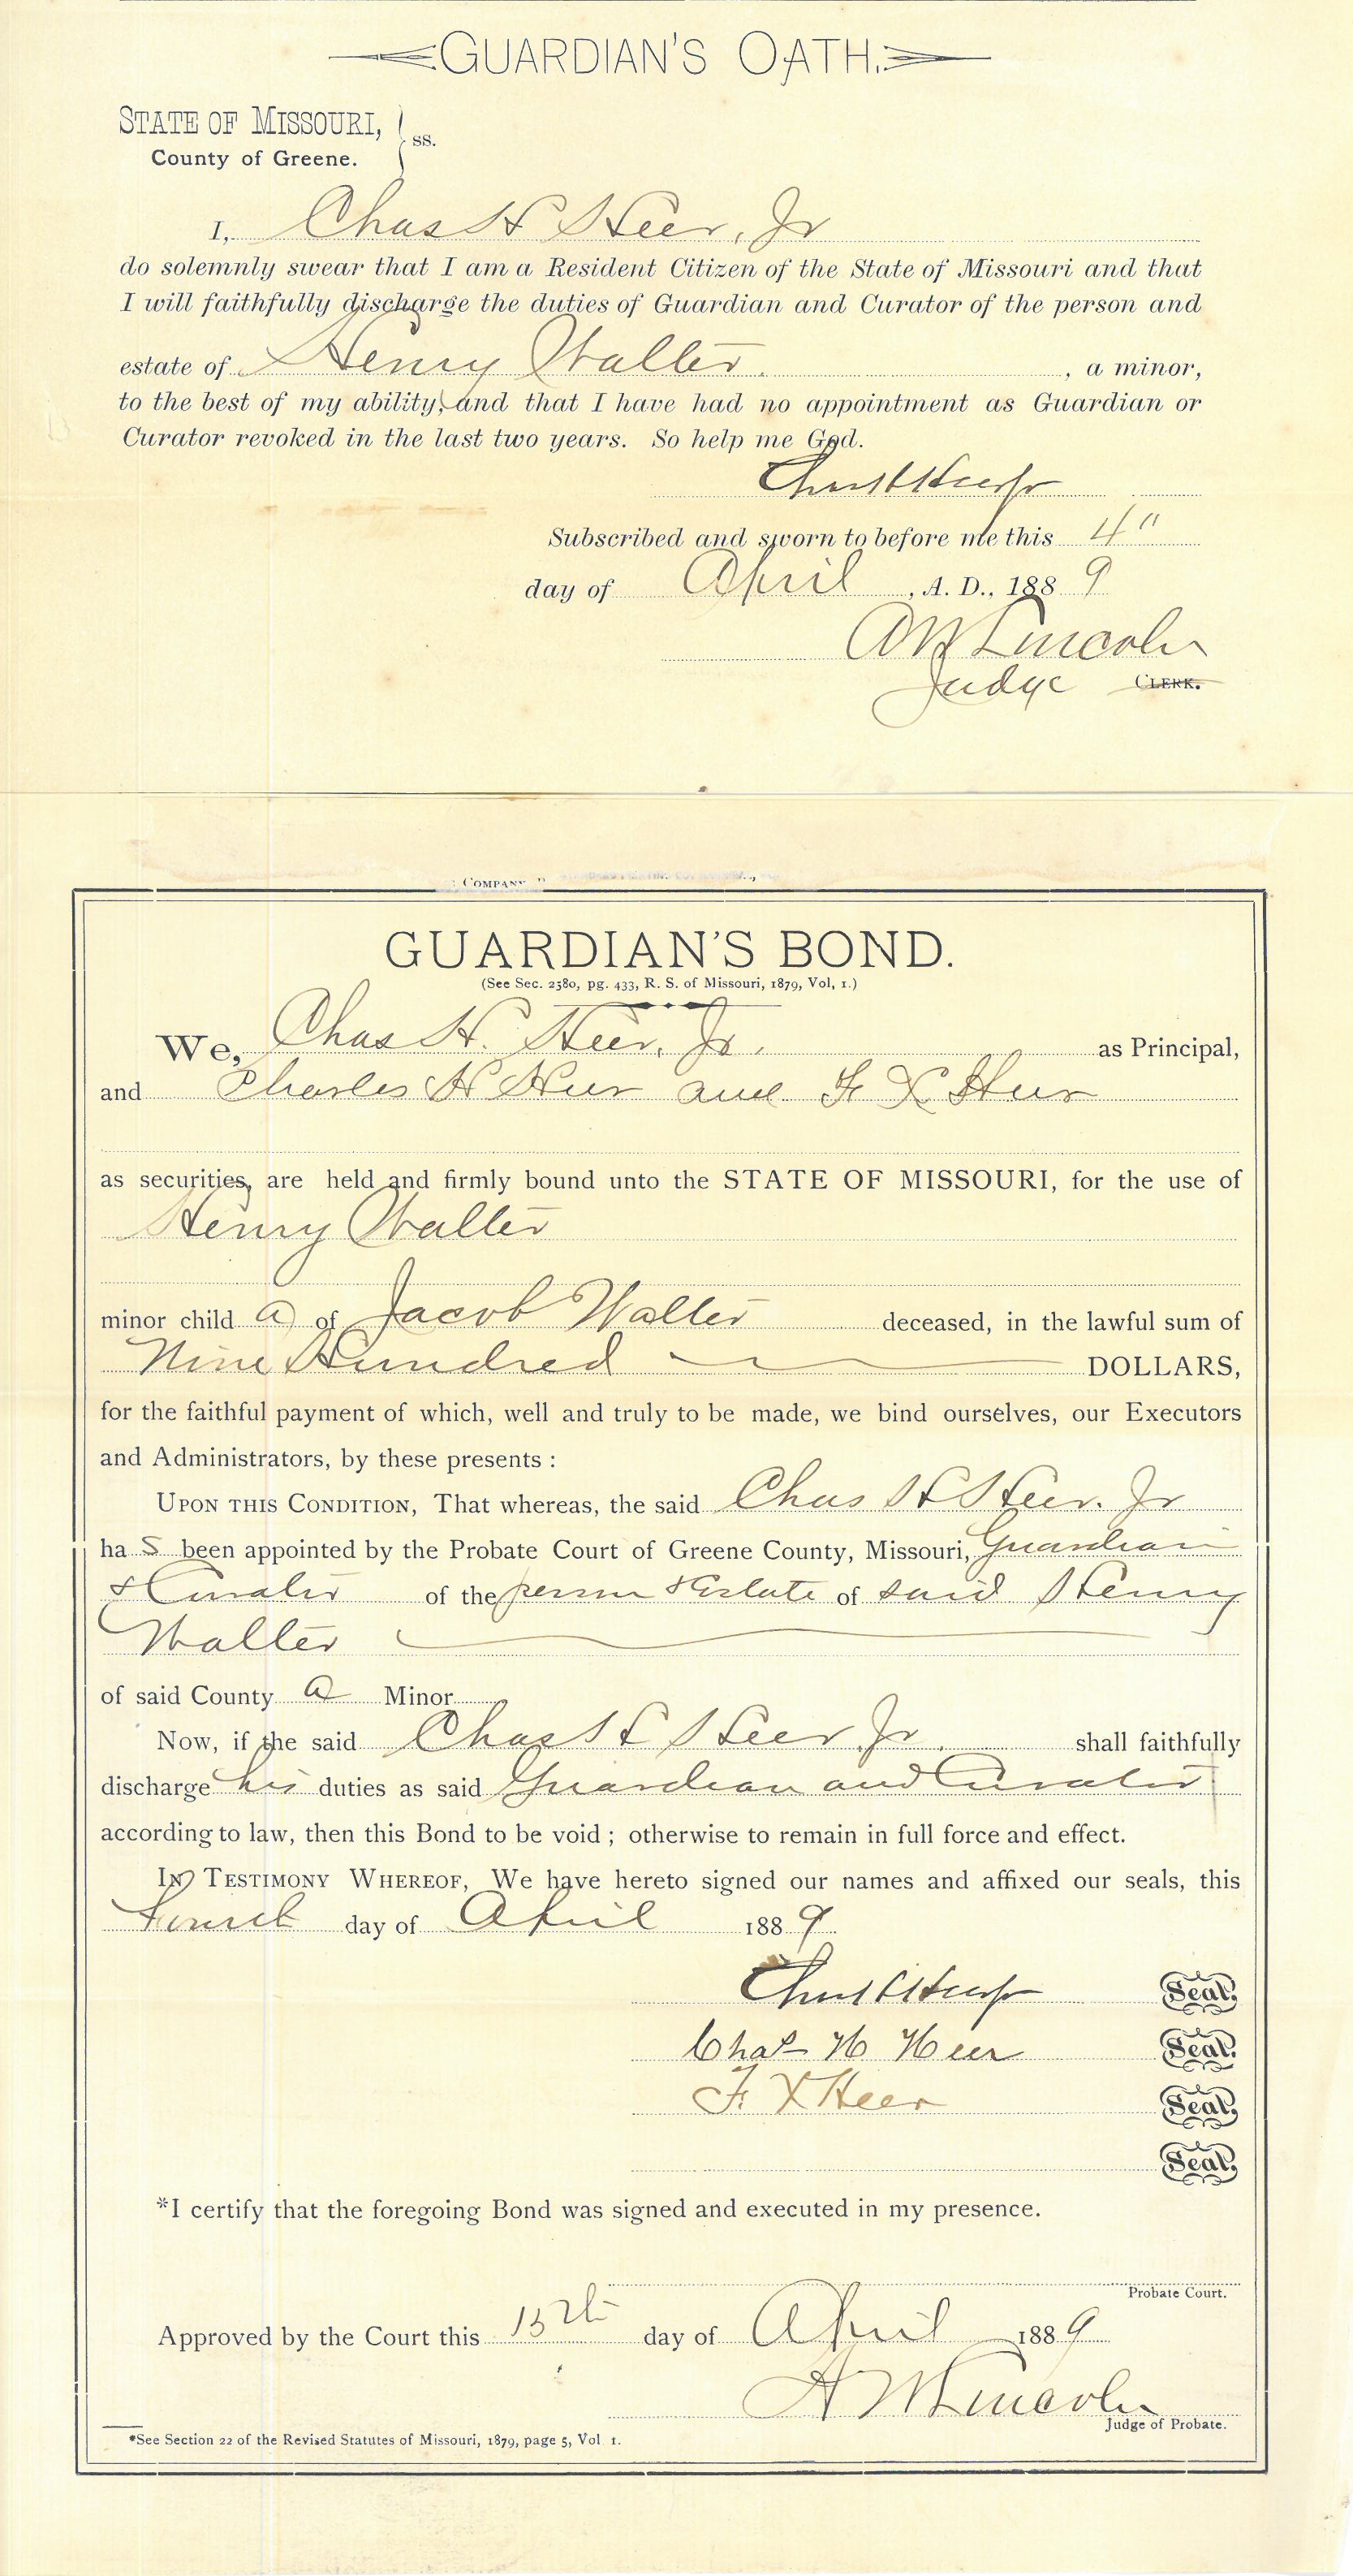 GUARDIAN'S OATH.
STATE OF MISSOURI, } ss.
County of Greene.
I, Chas H Heer, Jr
do solemnly swear that I am a Resident Citizen of the State of Missouri and that
I will faithfully discharge the duties of Guardian and Curator of the person and
estate of Henry Walter , a minor,
to the best of my ability, and that I have had no appointment as Guardian or
Curator revoked in the last two years. So help me God.
Chas H Heer Jr
Subscribed and sworn to before me this 4"
day of April , A. D., 1889
A W Lincoln
Judge CLERK.
COMPANY
GUARDIAN'S BOND.
(See Sec. 2580, pg. 433, R. S. of Missouri, 1879, Vol, 1.)
We, Chas H. Heer, Jr. as Principal,
and Charles H Heer and F X Heer
as securities, are held and firmly bound unto the STATE OF MISSOURI, for the use of
Henry Walter
minor child a of Jacob Walter deceased, in the lawful sum of
Nine Hundred DOLLARS,
for the faithful payment of which, well and truly to be made, we bind ourselves, our Executors
and Administrators, by these presents :
UPON THIS CONDITION, That whereas, the said Chas H Heer. Jr
ha s been appointed by the Probate Court of Greene County, Missouri, Guardian
& Curator of the person & Estate of said Henry
Walter
of said County a Minor
Now, if the said Chas H Heer Jr. shall faithfully
discharge his duties as said Guardian and Curator
according to law, then this Bond to be void ; otherwise to remain in full force and effect.
IN TESTIMONY WHEREOF, We have hereto signed our names and affixed our seals, this
Fourth day of April 1889
Chas H Heer Jr Seal.
Chas H Heer Seal.
F. X Heer Seal.
Seal.
*I certify that the foregoing Bond was signed and executed in my presence.
Probate Court.
Approved by the Court this 15th day of April 1889
A W Lincoln
Judge of Probate.
*See Section 22 of the Revised Statutes of Missouri, 1879, page 5, Vol 1.